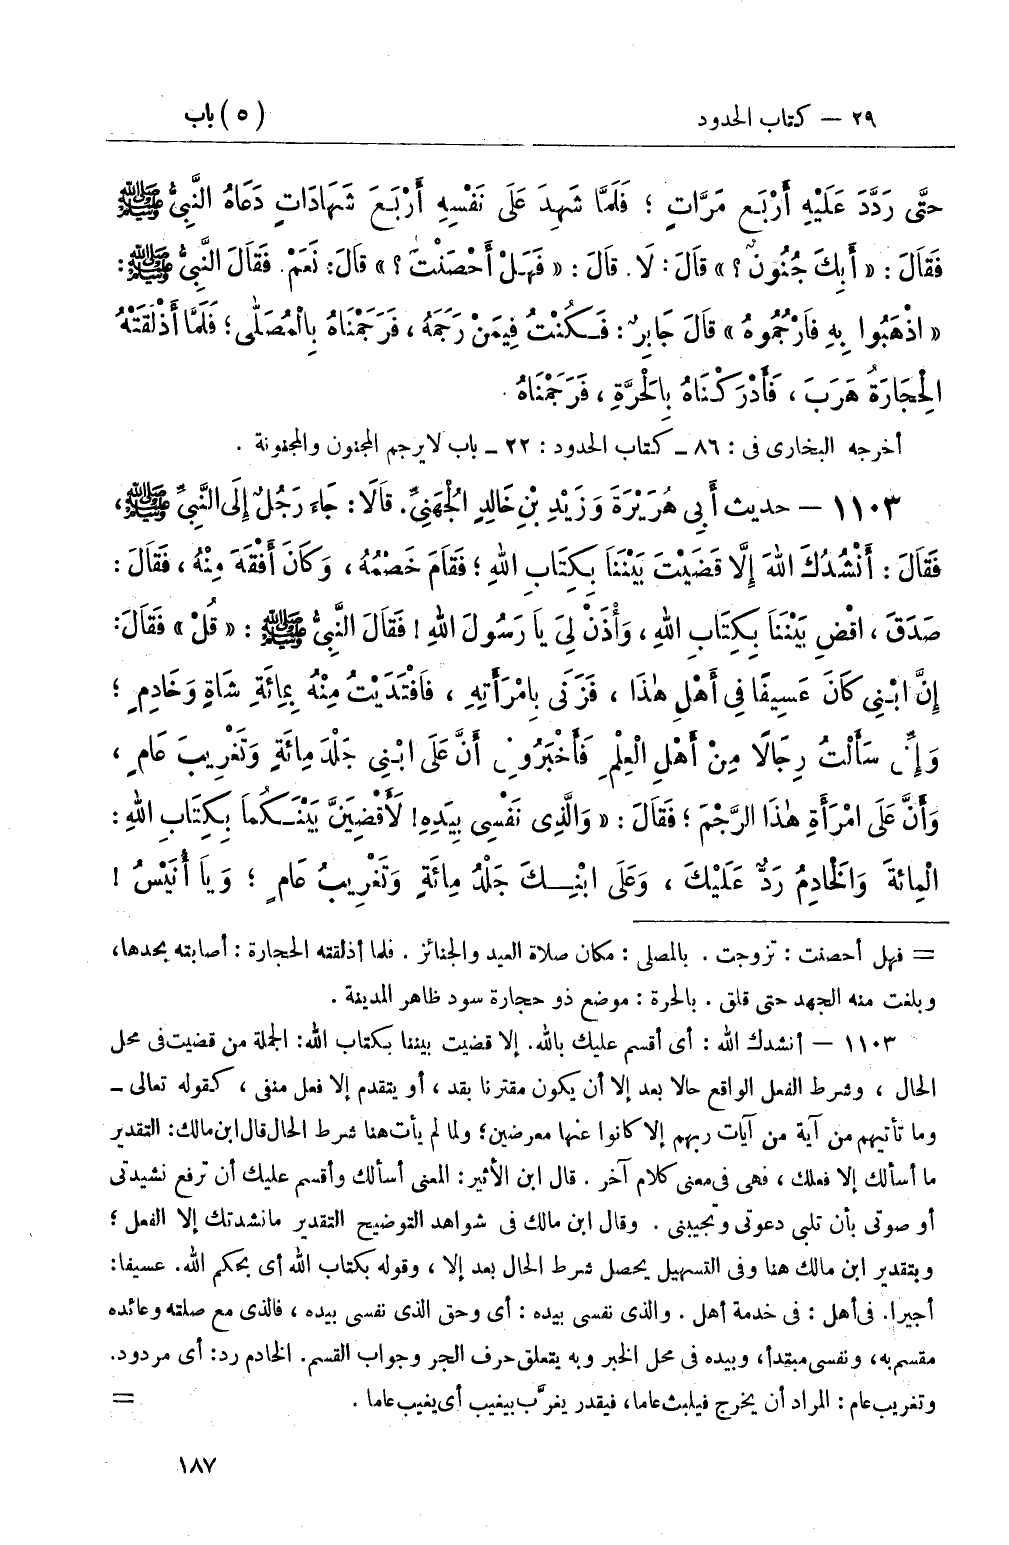 ٢٩ — كتاب الحدود
(٥) باب
حَتَّى رَدَّدَ عَلَيْهِ أَرْبَعَ مَرَّاتٍ ؛ فَلَمَّا شَهِدَ عَلَى نَفْسِهِ أَرْبَعَ شَهَادَاتٍ دَعَاهُ النَّبِىُّ ﷺ
فَقَالَ : « أَبِكَ جُنُونٌ ؟ » قَالَ : لَا . قَالَ : « فَهَلْ أَحْصَنْتَ ؟ » قَالَ : نَعَمْ . فَقَالَ النَّبِىُّ ﷺ :
« اذْهَبُوا بِهِ فَارْجُمُوهُ » قَالَ جَابِرٌ : فَكُنْتُ فِيمَنْ رَجَمَهُ ، فَرَجَمْنَاهُ بِالْمُصَلَّى ؛ فَلَمَّا أَذْلَقَتْهُ
الْحِجَارَةُ هَرَبَ ، فَأَدْرَكْنَاهُ بِالْحَرَّةِ ، فَرَجَمْنَاهُ .
أخرجه البخارى فى : ٨٦ ـ كتاب الحدود : ٢٢ ـ باب لا يرجم المجنون والمجنونة .
١١٠٣ — حديث أَبِى هُرَيْرَةَ وَزَيْدِ بْنِ خَالِدٍ الْجُهَنِيِّ . قَالَا : جَاءَ رَجُلٌ إِلَى النَّبِىِّ ﷺ ،
فَقَالَ : أَنْشُدُكَ اللهَ إِلَّا قَضَيْتَ بَيْنَنَا بِكِتَابِ اللهِ ؛ فَقَامَ خَصْمُهُ ، وَكَانَ أَفْقَهَ مِنْهُ ، فَقَالَ :
صَدَقَ ، اقْضِ بَيْنَنَا بِكِتَابِ اللهِ ، وَأْذَنْ لِي يَا رَسُولَ اللهِ ! فَقَالَ النَّبِىُّ ﷺ : « قُلْ » فَقَالَ :
إِنَّ ابْنِي كَانَ عَسِيفًا فِي أَهْلِ هٰذَا ، فَزَنَى بِامْرَأَتِهِ ، فَافْتَدَيْتُ مِنْهُ بِمِائَةِ شَاةٍ وَخَادِمٍ ؛
وَإِنِّي سَأَلْتُ رِجَالًا مِنْ أَهْلِ الْعِلْمِ فَأَخْبَرُونِي أَنَّ عَلَى ابْنِي جَلْدَ مِائَةٍ وَتَغْرِيبَ عَامٍ ،
وَأَنَّ عَلَى امْرَأَةِ هٰذَا الرَّجْمَ ؛ فَقَالَ : « وَالَّذِى نَفْسِى بِيَدِهِ ! لَأَقْضِيَنَّ بَيْنَكُمَا بِكِتَابِ اللهِ :
الْمِائَةَ وَالْخَادِمُ رَدٌّ عَلَيْكَ ، وَعَلَى ابْنِكَ جَلْدُ مِائَةٍ وَتَغْرِيبُ عَامٍ ؛ وَيَا أُنَيْسُ !
= فهل أحصنت : تزوجت . بالمصلى : مكان صلاة العيد والجنائز . فلما أذلقته الحجارة : أصابته بحدها ،
وبلغت منه الجهد حتى قلق . بالحرة : موضع ذو حجارة سود ظاهر المدينة .
١١٠٣ — أنشدك الله : أى أقسم عليك بالله . إلا قضيت بيننا بكتاب الله : الجملة من قضيت فى محل
الحال ، وشرط الفعل الواقع حالا بعد إلا أن يكون مقترنا بقد ، أو يتقدم إلا فعل منفى ، كقوله تعالى ـ
وما تأتيهم من آية من آيات ربهم إلا كانوا عنها معرضين ؛ ولما لم يأت هنا شرط الحال قال ابن مالك : التقدير
ما أسألك إلا فعلك ، فهى فى معنى كلام آخر . قال ابن الأثير : المعنى أسألك وأقسم عليك أن ترفع نشيدتى
أو صوتى بأن تلبى دعوتى وتجيبنى . وقال ابن مالك فى شواهد التوضيح التقدير ما نشدتك إلا الفعل ؛
وبتقدير ابن مالك هنا وفى التسهيل يحصل شرط الحال بعد إلا ، وقوله بكتاب الله أى بحكم الله . عسيفا :
أجيرا . فى أهل : فى خدمة أهل . والذى نفسى بيده : أى وحق الذى نفسى بيده ، فالذى مع صلته وعائده
مقسم به ، ونفسى مبتدأ ، وبيده فى محل الخبر وبه يتعلق حرف الجر وجواب القسم . الخادم رد : أى مردود .
وتغريب عام : المراد أن يخرج فيلبث عاما ، فيقدر يغرَّب بيغيب أى يغيب عاما .
=
١٨٧